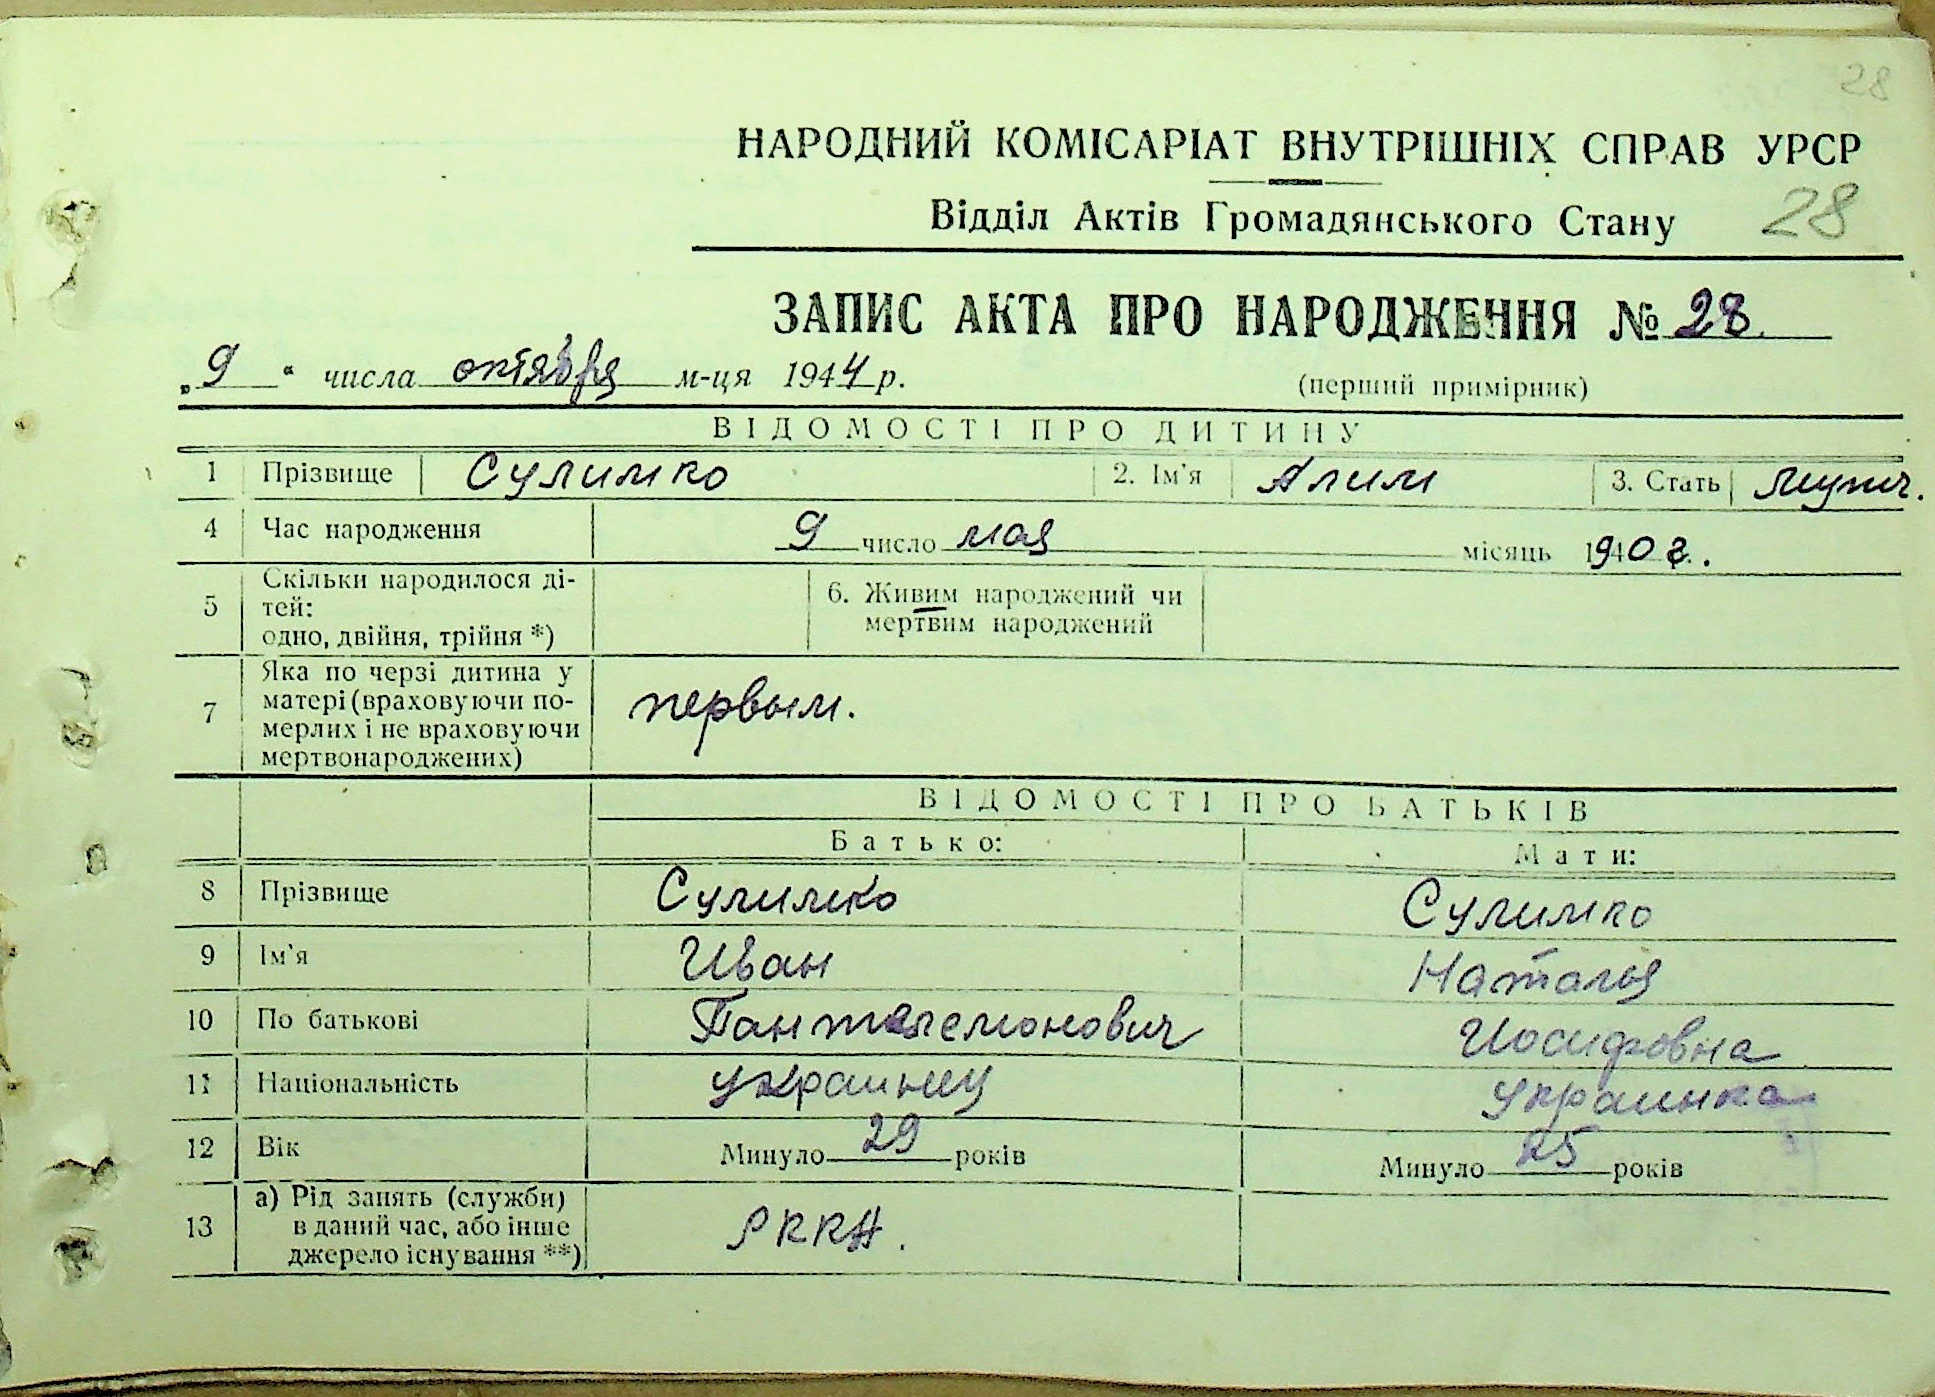 28
НАРОДНИЙ КОМІСАРІАТ ВНУТРІШНІХ СПРАВ УРСР
Відділ Актів Громадянського Стану 28
ЗАПИС АКТА ПРО НАРОДЖЕННЯ № 28
„ 9 “ числа октября м-ця 1944 р. (перший примірник)
ВІДОМОСТІ ПРО ДИТИНУ
1 Прізвище Сулимко 2. Ім'я Алим 3. Стать мужч.
4 Час народження 9 число мая місяць 1940 г.
5 Скільки народилося ді-
тей:
одно, двійня, трійня *)
6. Живим народжений чи
мертвим народжений
7 Яка по черзі дитина у
матері (враховуючи по-
мерлих і не враховуючи
мертвонароджених)
первым.
ВІДОМОСТІ ПРО БАТЬКІВ
Батько: Мати:
8 Прізвище Сулимко Сулимко
9 Ім'я Иван Наталья
10 По батькові Пантелемонович Иосифовна
11 Національність украинец украинка
12 Вік Минуло 29 років Минуло 25 років
13 а) Рід занять (служби)
в даний час, або інше
джерело існування **)
РККА.